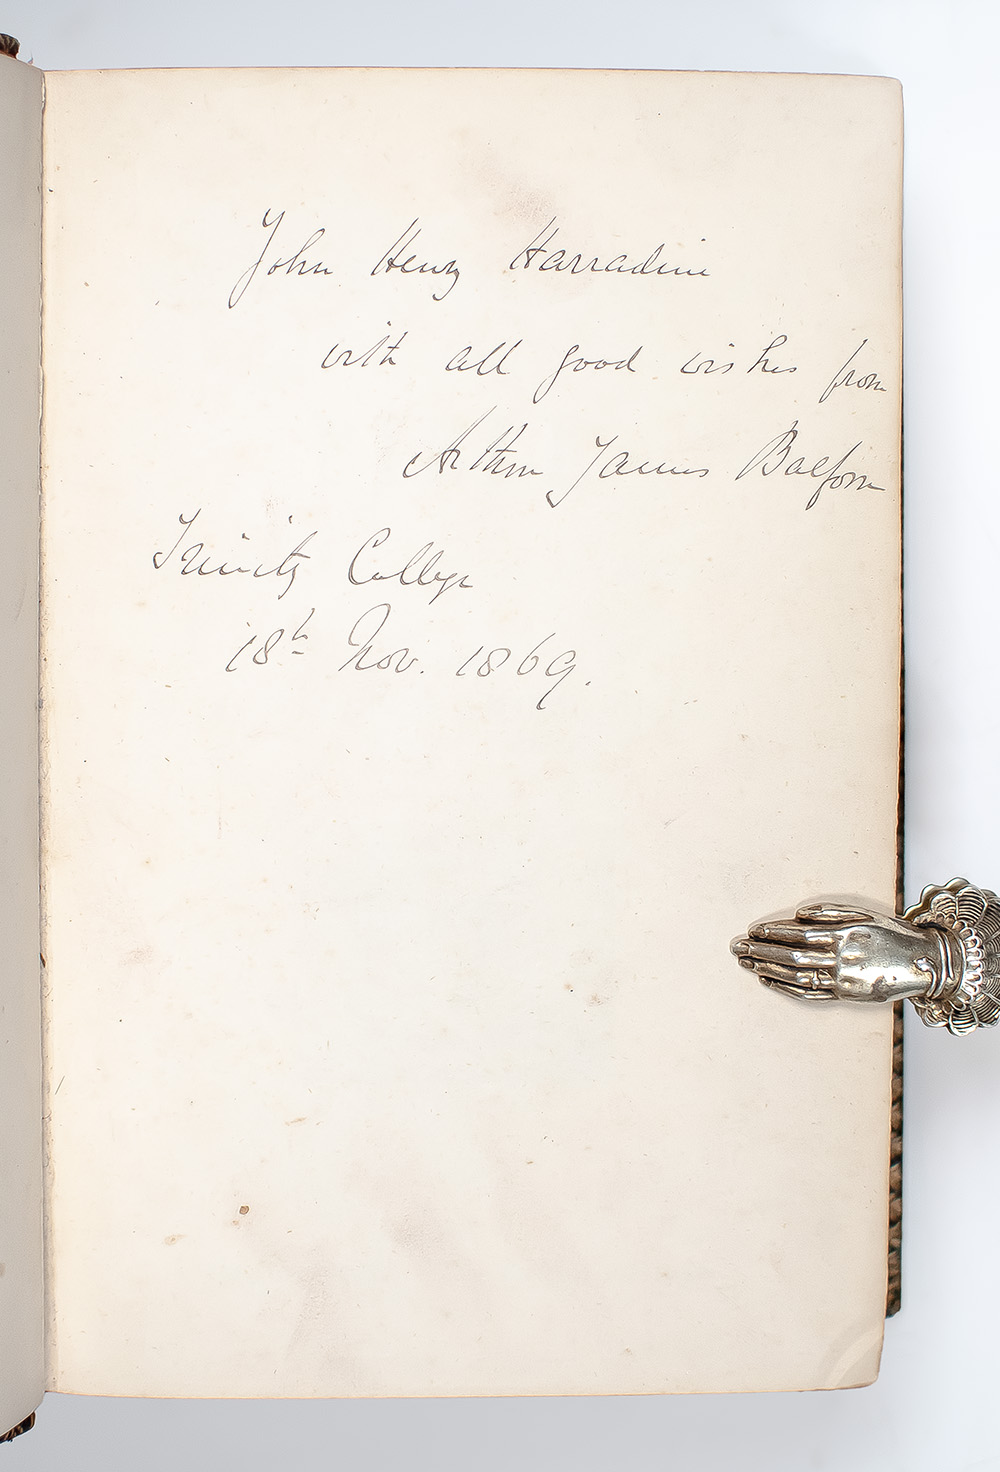 John Henry Harradine
with all good wishes from
Arthur James Balfour
Trinity College
18th Nov. 1869.